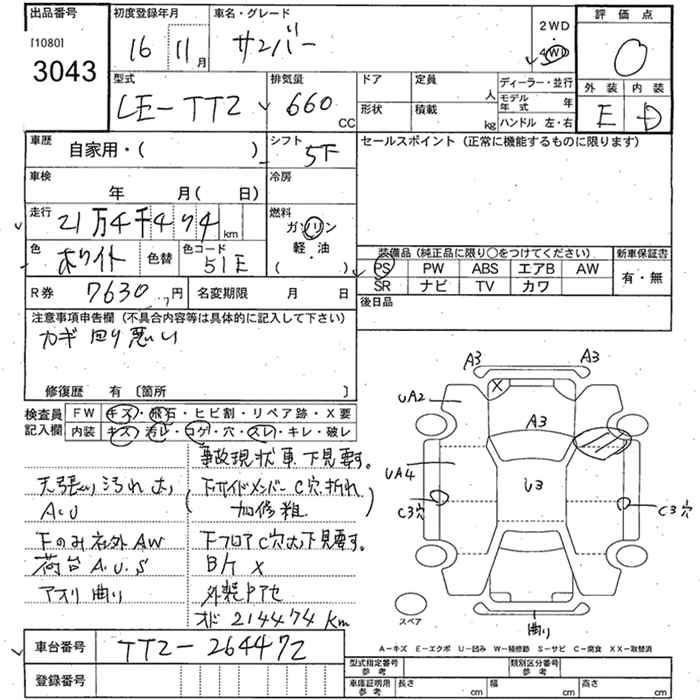 出品番号
[1080]
3043
初度登録年月
16 11月
車名・グレード
サンバー
2WD
4WD
評価点
0
外装 内装
E D
型式
LE-TT2
排気量
660 CC
ドア
形状
定員 人
積載 kg
ディーラー・並行
モデル年式 年
ハンドル 左・右
車歴
自家用・( )
シフト
5F
セールスポイント (正常に機能するものに限ります)
車検
年 月( 日)
冷房
走行
21万4千474 km
燃料
ガソリン
軽・油
( )
色
ホワイト
色替
色コード
51E
装備品 (純正品に限り○をつけてください)
PS PW ABS エアB AW
SR ナビ TV カワ
新車保証書
有・無
R券
7630円
名変期限 月 日
後日品
注意事項申告欄 (不具合内容等は具体的に記入して下さい)
カギ回り悪い
修復歴 有 〔箇所 〕
検査員記入欄
FW キズ・飛石・ヒビ割・リペア跡・X要
内装 キズ・汚レ・コゲ・穴・スレ・キレ・破レ
事故現状車 下見要す。
天張り汚れ大
下サイドメンバー C穴、折れ
A.U
加修粗
下のみ社外AW
下フロアC穴大下見要す。
荷台A.U.S
B/T X
アオリ曲り
外装Pアセ
オド 214474 Km
車台番号
TT2-264472
登録番号
A3 A3
UA2
X
A3
UA4
U3
C3穴
C3穴
スペア
曲り
A-キズ E-エクボ U-凹み W-補修跡 S-サビ C-腐食 XX-取替済
型式指定番号
参考
類別区分番号
参考
車庫証明用
参考
長さ cm
幅 cm
高さ cm